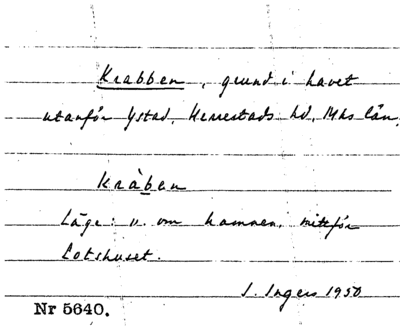 Krabben, grund i havet
utanför Ystad, Herrestads hd, Mhs län.
kràben
Läge: v. om hamnen, mittför
Lotshuset.
I. Ingers 1950
Nr 5640.